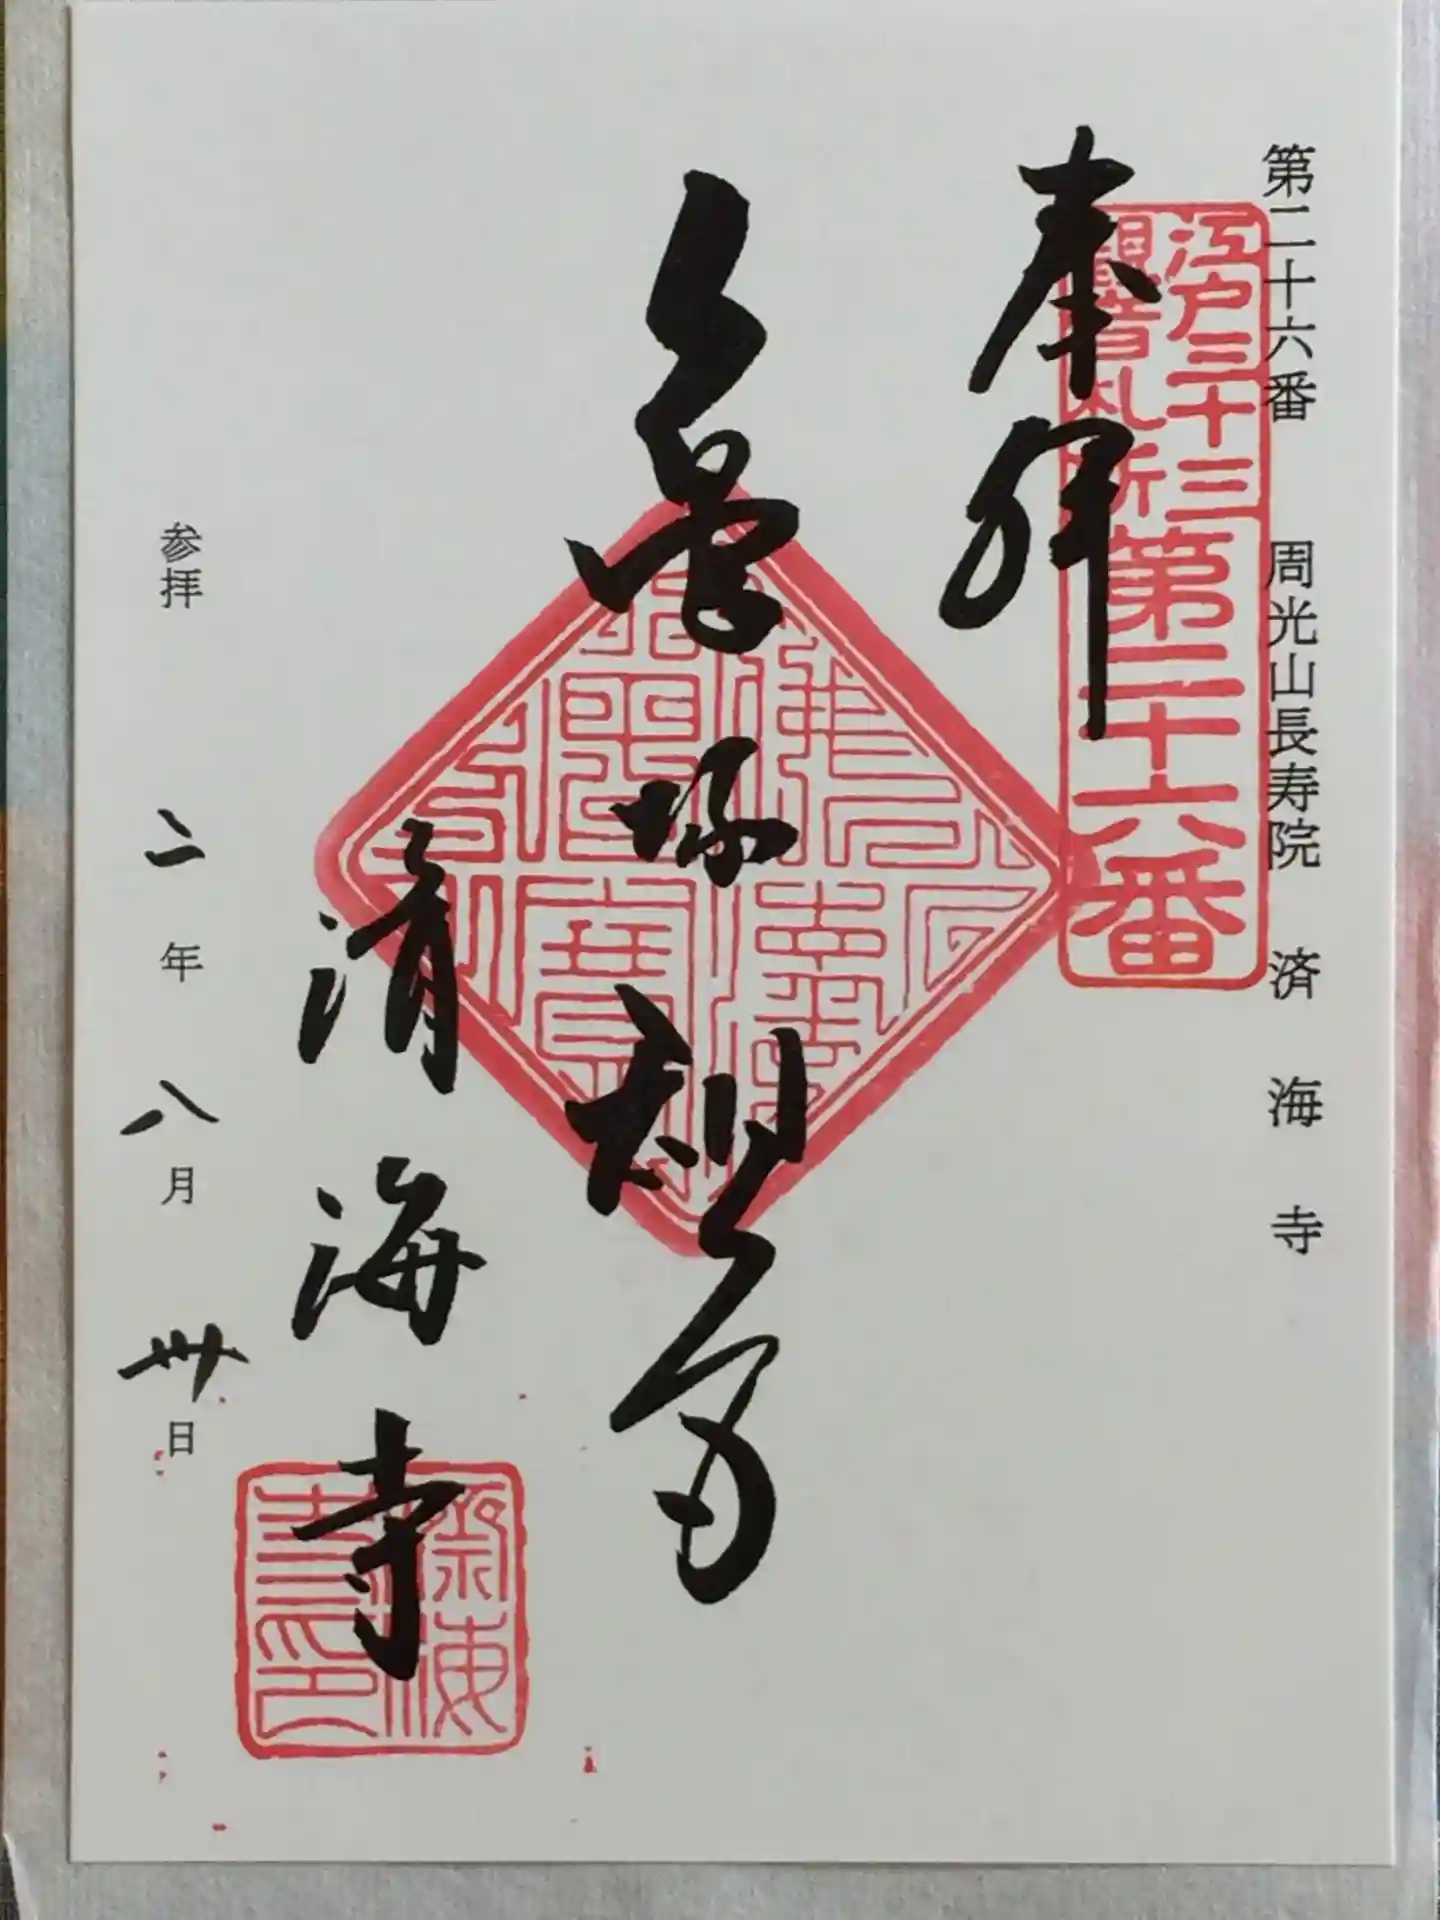 第二十六番　周光山長寿院　済海寺
江戸三十三
観音札所
第二十六番
奉拝
亀塚観音
済海寺
参拝　二年八月卅日